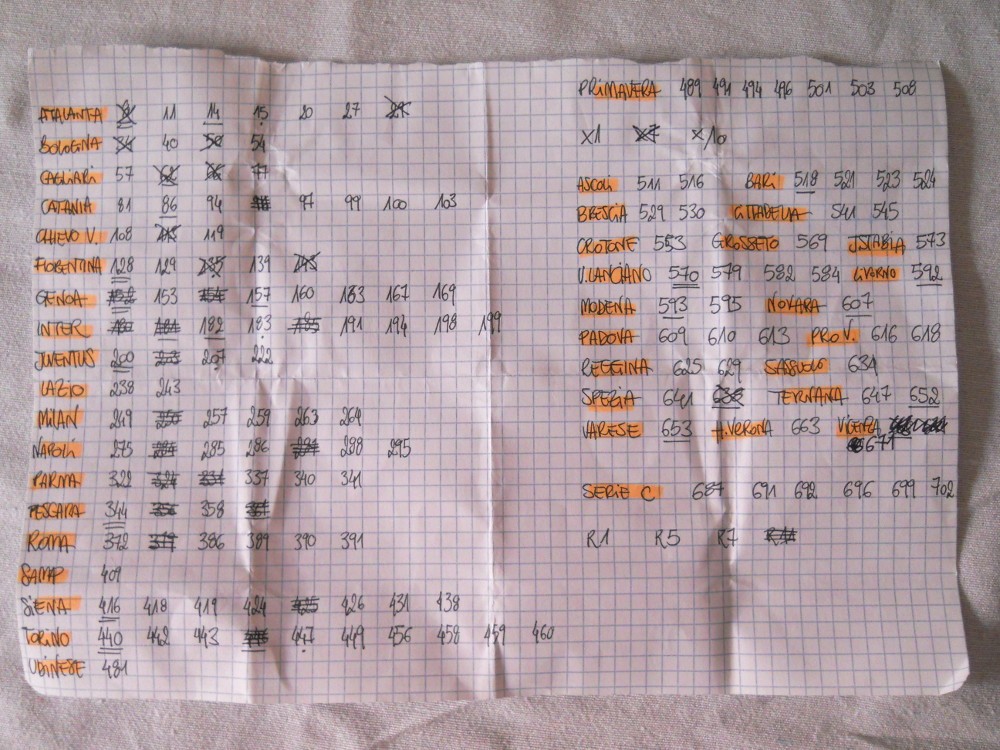 ATALANTA 11 14 15 20 27
BOLOGNA 40
CAGLIARI 57
CATANIA 81 86 94 97 99 100 103
CHIEVO V. 108 119
FIORENTINA 128 129 139
GENOA 153 157 160 163 167 169
INTER 182 183 191 194 198 199
JUVENTUS 200 207 222
LAZIO 238 243
MILAN 249 257 259 263 264
NAPOLI 275 285 286 288 295
PARMA 322 337 340 341
PESCARA 344 358
ROMA 372 386 389 390 391
SAMP 409
SIENA 416 418 419 424 426 431 438
TORINO 440 442 443 447 449 456 458 459 460
UDINESE 481
PRIMAVERA 489 491 494 496 501 503 508
X1 X10
ASCOLI 511 516 BARI 518 521 523 524
BRESCIA 529 530 CITADELLA 541 545
CROTONE 553 GROSSETO 569 J.STABIA 573
V.LANCIANO 570 579 582 584 LIVORNO 592
MODENA 593 595 NOVARA 607
PADOVA 609 610 613 PRO V. 616 618
REGGINA 625 629 SASSUOLO 634
SPEZIA 641 TERNANA 647 652
VARESE 653 H.VERONA 663 VICENZA
671
SERIE C 687 691 692 696 699 702
R1 R5 R7